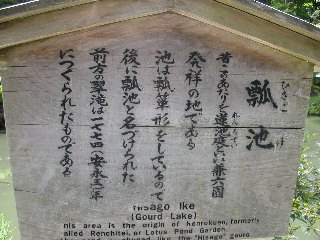 瓢池
ひさご いけ
昔このあたりを蓮池庭といい兼六園
れんちてい
発祥の地である
池は瓢箪形をしているので
後に瓢池と名づけられた
前方の翠滝は一七七四(安永三)年
につくられたものである
Hisago Ike
(Gourd Lake)
This area is the origin of Kenrokuen, formerly
called Renchitei, or Lotus Pond Garden.
like the "Hisago" gourd